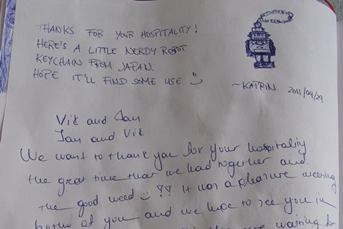 THANKS FOR YOUR HOSPITALITY!
HERE'S A LITTLE NERDY ROBOT
KEYCHAIN FROM JAPAN.
HOPE IT'LL FIND SOME USE.
~KATRIN 2011/09/29
Vik and Jan
Jan and Vik
We want to thank you for your hospitality
the great time that we had together and
the good weed !! It was a pleasure meeting
both of you and we hope to see you in